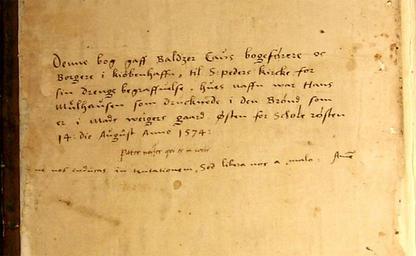 Denne bog gaff Baldzer Caus bogeførere oc
Borgere i kiøbenhaffn, til S: peders kircke for
sin drenge begraffuilse, hues naffn war Hans
Mülhausen som drucknede i den Brønd som
er i Mads weigers gaard Østen for Schole
14: die August Anno 1574:
Pater noster qui es in
ne nos inducas in tentationem, Sed libera nos a malo: Amen